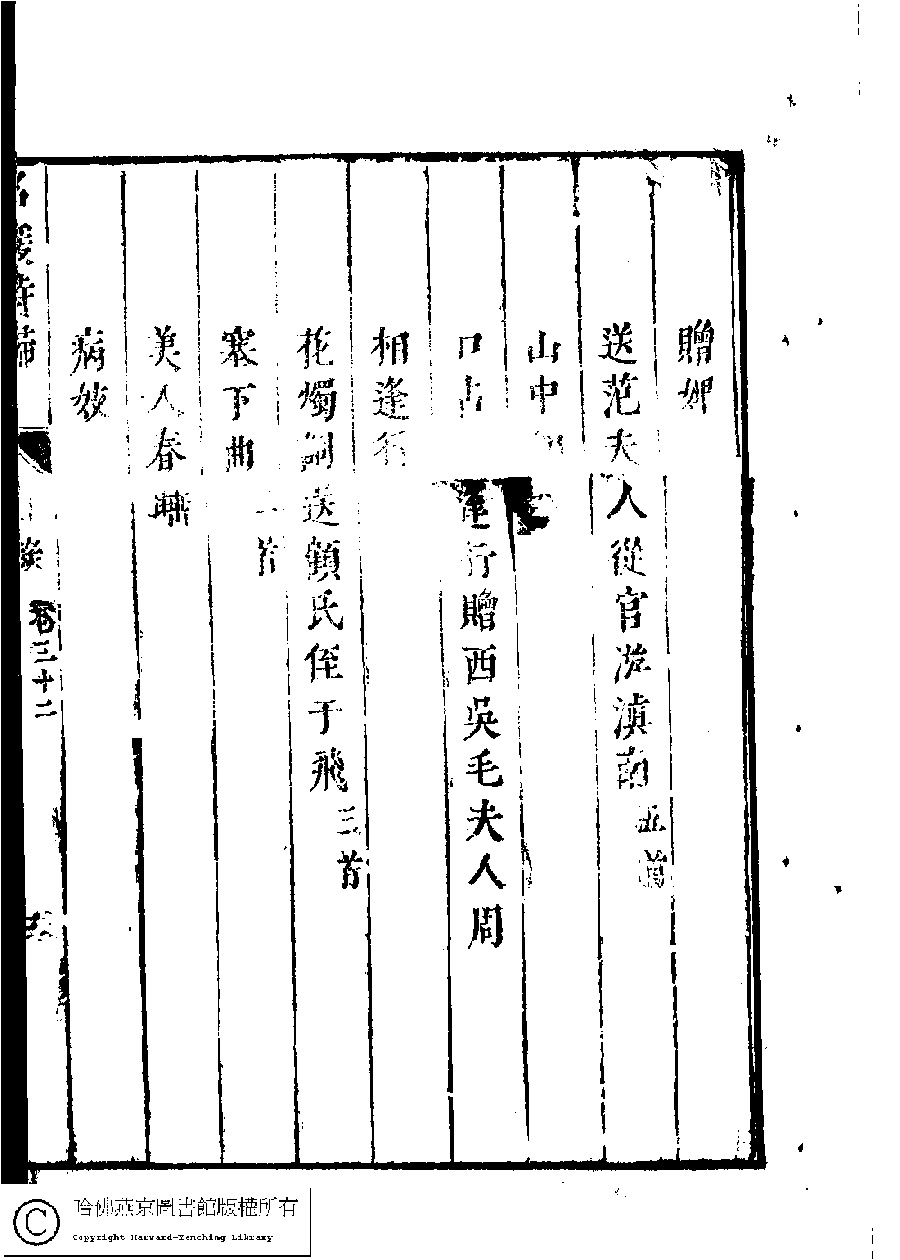 贈婢
送范夫人從官遊滇南五首
山中
口占
章行贈西吳毛夫人周
相逢行
花燭詞送顧氏侄于飛三首
塞下曲二首
美人春
病妓
名媛詩
卷三十二
哈佛燕京圖書館版權所有
Copyright Harvard-Yenching Library